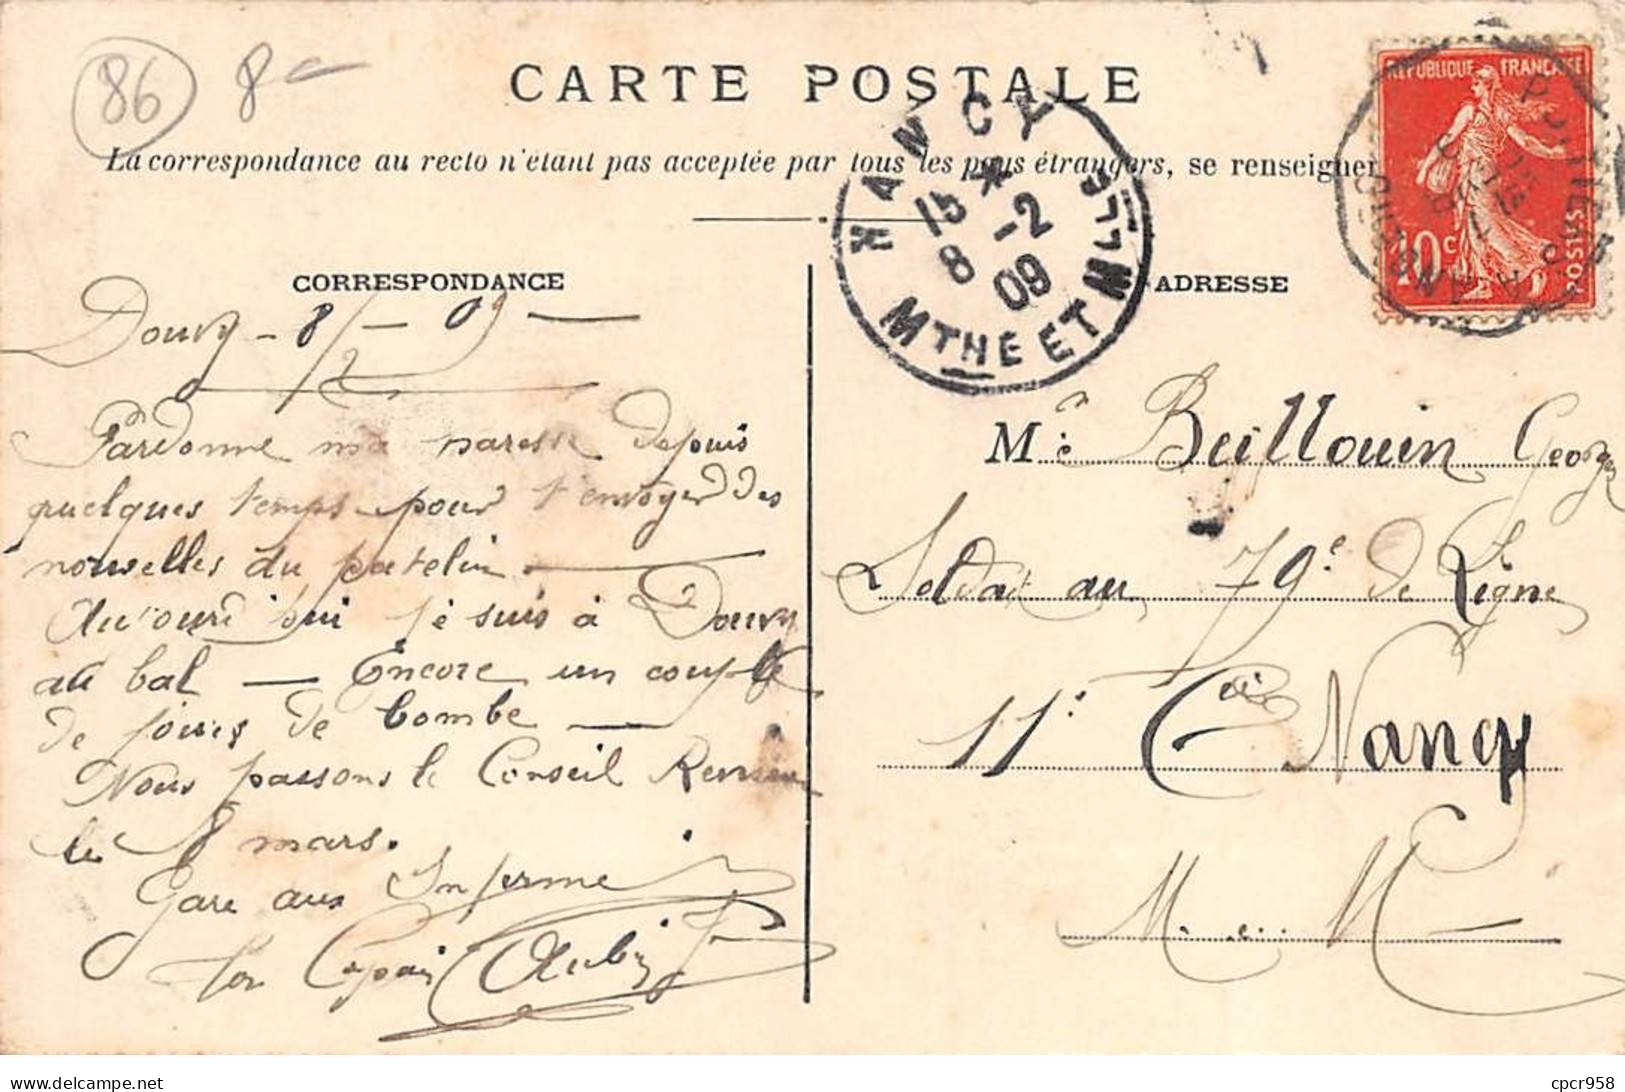 86 8
CARTE POSTALE
La correspondance au recto n'étant pas acceptée par tous les pays étrangers, se renseigner
REPUBLIQUE FRANÇAISE
10c
POSTES
POITIERS
NANCY
15 * -2
8 09
MTHE ET MLLE
CORRESPONDANCE
ADRESSE
Douvy - 8/2 - 09
Pardonne ma paresse depuis
quelques temps pour t'envoyer des
nouvelles du patelin.
Aujourd'hui je suis à Douvy
au bal — Encore un couple
de jours de bombe —
Nous passons le Conseil Revision
le 8 mars.
Gare aux Infirme
Ton Copain Aubin
Mr Beillouin Georges
Soldat au 79e de Ligne
11e Cie Nancy
M. et M.
cpcr958